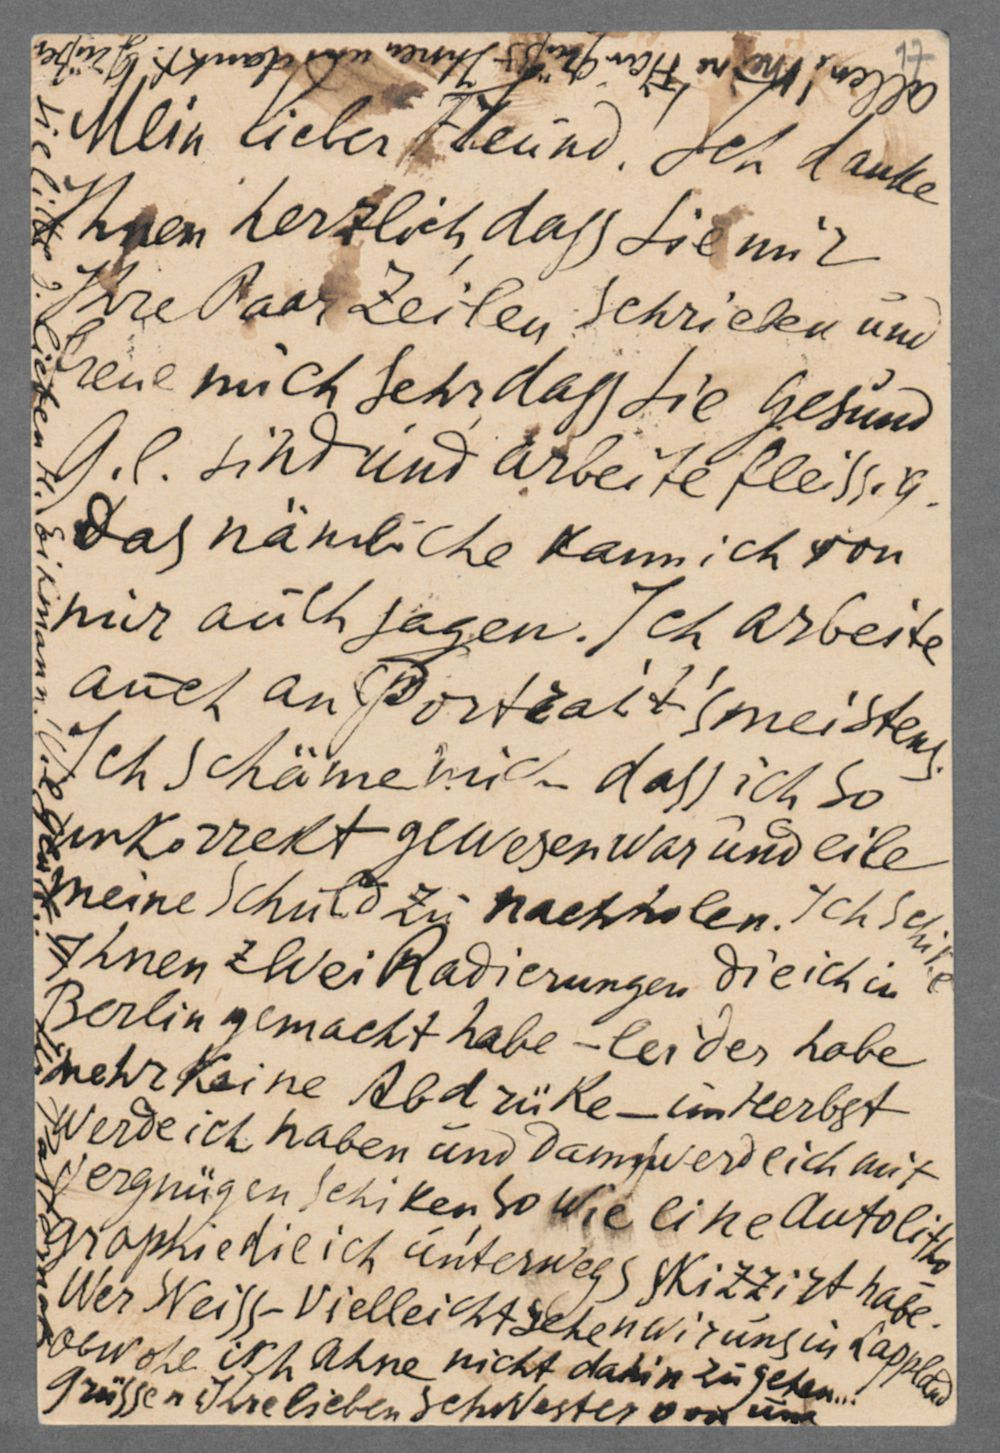 Mein lieber Freund. Ich danke
Ihnen herzlich, dass Sie mir
Ihre Paar Zeilen schrieben und
freue mich sehr, dass Sie gesund
G. l. sind und arbeite fleissig.
Das nämliche kann ich von
mir auch sagen. Ich arbeite
auch an Portrait's meistens.
Ich schäme mich dass ich so
unkorrekt gewesen war und eile
meine Schuld zu nachholen. Ich schike
Ihnen zwei Radierungen die ich in
Berlin gemacht habe – leider habe
mehr keine Abdrüke – im Herbst
werde ich haben und dann werde ich mit
vergnügen schiken, so wie eine Autolitho
graphie die ich unterwegs skizzirt habe.
Wer Weiss – Vielleicht sehen wir uns in Lappland
obwohl ich ahne nicht dahin zu gehen...
Grüssen Ihre lieben Schwester von uns
allen! Meine Frau grüsst Ihnen und dankt. Grüssen
17